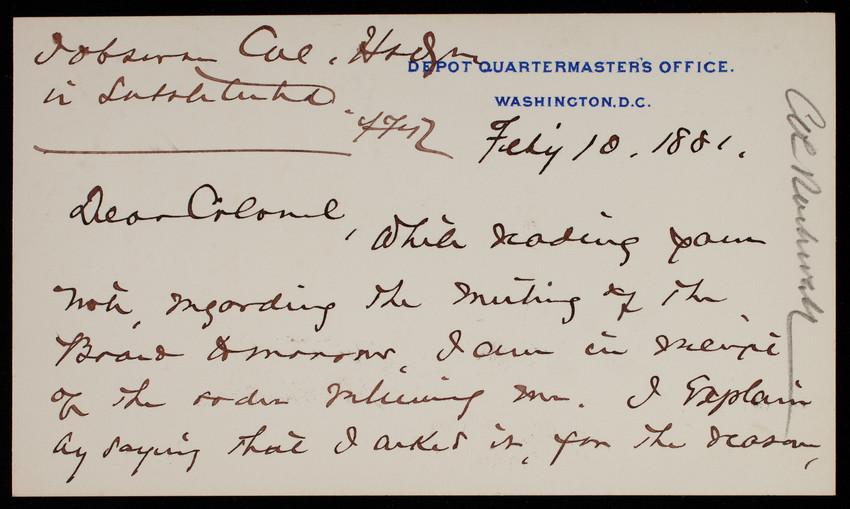 I observe Col. Hodges
is substituted
DEPOT QUARTERMASTER'S OFFICE.
WASHINGTON, D.C.
Feb'y 10. 1881.
Dear Colonel,
While reading your
note, regarding the meeting of the
Board tomorrow, I am in receipt
of the order relieving me. I explain
by saying that I asked it, for the reason,
Col